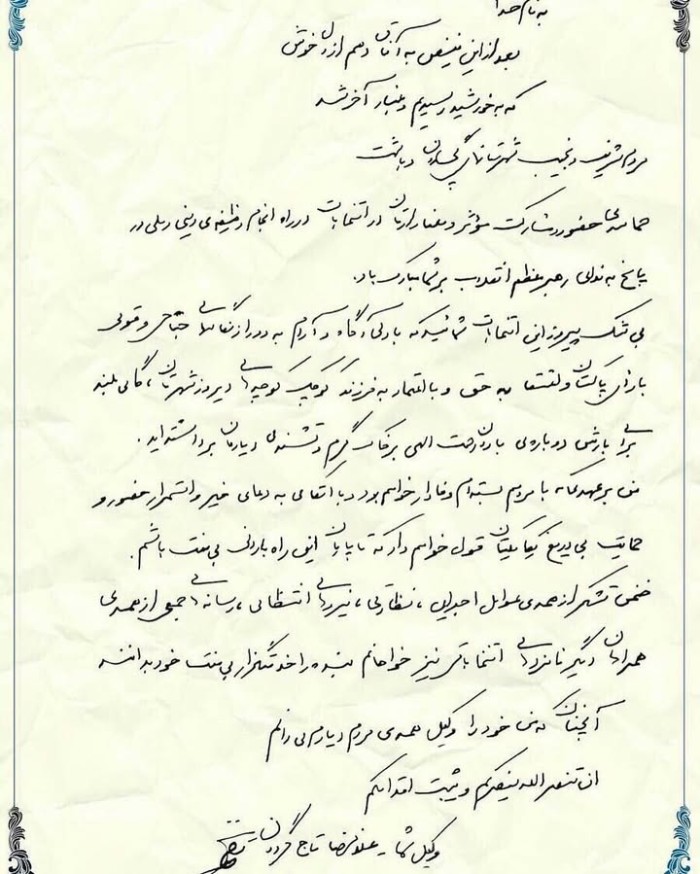 به نام خدا
بعد از این نور به آفاق دهم از دل خویش
که به خورشید رسیدیم و غبار آخر شد
مردم شریف و نجیب شهرستانهای گچساران و باشت
حماسه‌ی حضور و مشارکت مؤثر و معنادارتان در انتخابات در راه انجام وظیفه‌ی دینی و ملی در
پاسخ به ندای رهبر معظم انقلاب بر شما مبارک باد.
بی شک پیروز این انتخابات شمائید که با دلی آگاه و آرام به دور از نگاههای جناحی و قومی
با رای پاکتان و به حق و با اعتماد به فرزند کوچک کوچه‌های دیروز شهرتان، گامی بلند
برای بارش دوباره‌ی باران رحمت الهی بر خاک گرم و تشنه‌ی دیارمان برداشته اید.
من بر عهدی که با مردم بسته‌ام وفادار خواهم بود و با اتکای به دعای خیر و استمرار حضور و
حمایت بی دریغ یکایکتان قول خواهم داد که تا پایان این راه بارانی بی‌منت باشم.
ضمن تشکر از همه‌ی عوامل اجرایی، نظارتی، نیروهای انتظامی، رسانه‌های جمعی از همه‌ی
همراهان دیگر نامزدهای انتخاباتی نیز خواهانم بنده را خدمتگزار بی‌منت خود بدانند
آنچنان که من خود را وکیل همه‌ی مردم دیارم می دانم
ان تنصرالله ینصرکم و یثبت اقدامکم
وکیل شما - غلامرضا تاجگردون